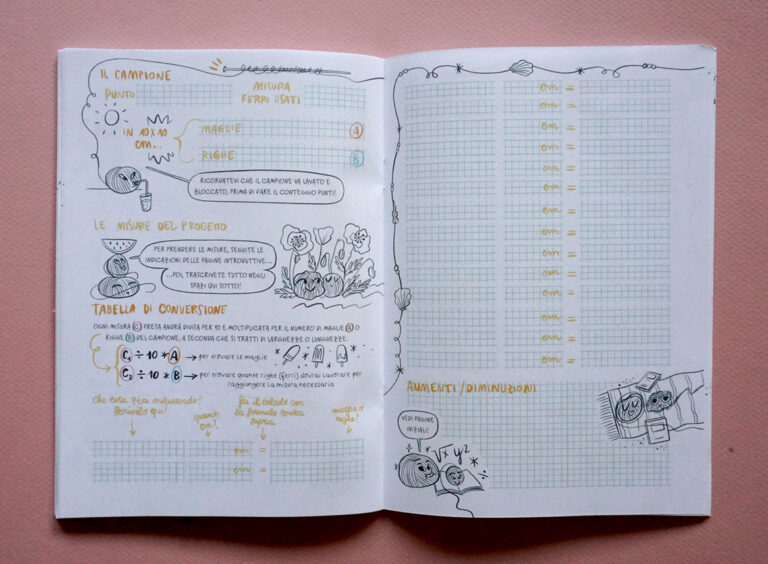 IL CAMPIONE
PUNTO
MISURA
FERRI USATI
IN 10X10
CM...
MAGLIE
A
RIGHE
B
RICORDATEVI CHE IL CAMPIONE VA LAVATO E
BLOCCATO, PRIMA DI FARE IL CONTEGGIO PUNTI!
LE MISURE DEL PROGETTO
PER PRENDERE LE MISURE, SEGUITE LE
INDICAZIONI DELLE PAGINE INTRODUTTIVE...
...POI, TRASCRIVETE TUTTO NEGLI
SPAZI QUI SOTTO!
TABELLA DI CONVERSIONE
OGNI MISURA (C) PRESA ANDRÀ DIVISA PER 10 E MOLTIPLICATA PER IL NUMERO DI MAGLIE (A) O
RIGHE (B) DEL CAMPIONE, A SECONDA CHE SI TRATTI DI LARGHEZZE O LUNGHEZZE.
C1 ÷ 10 * A → per trovare le maglie
C2 ÷ 10 * B → per trovare quante righe (ferri) dovrai lavorare per
raggiungere la misura necessaria
che cosa stai misurando?
scrivilo qui!
quanti
cm?
fai il calcolo con
la formula fornita
sopra
maglie o
righe?
cm =
cm =
cm =
cm =
cm =
cm =
cm =
cm =
cm =
cm =
cm =
cm =
cm =
cm =
cm =
cm =
AUMENTI/DIMINUZIONI
VEDI PAGINE
INIZIALI!
√x y² ÷